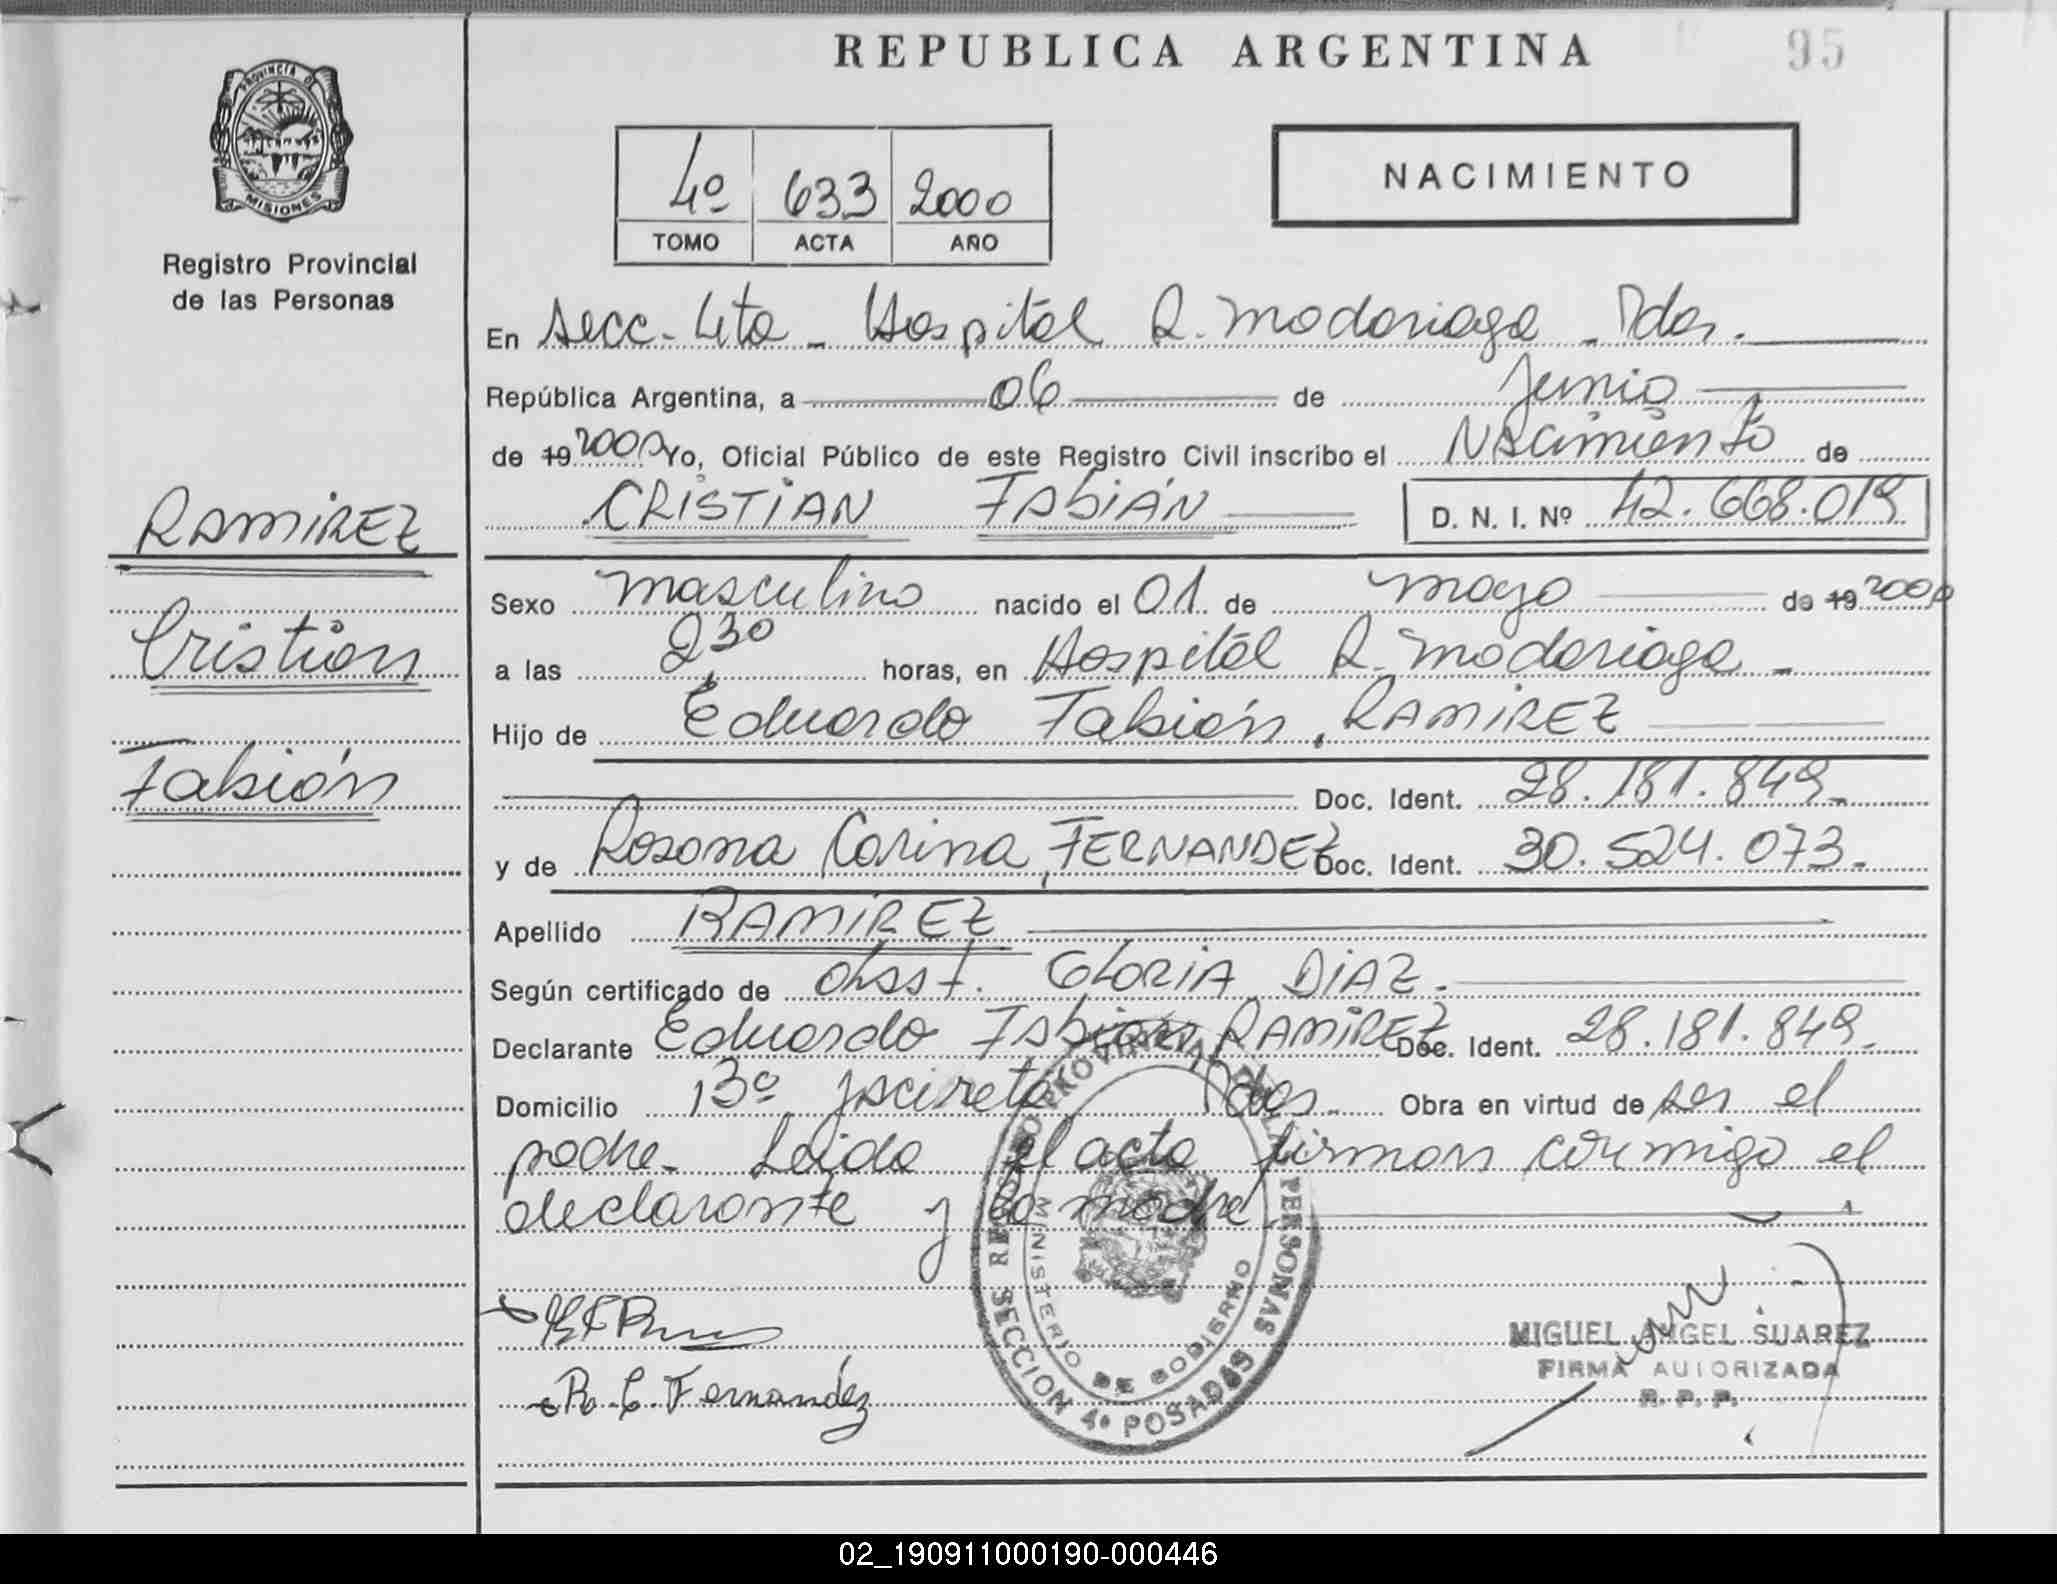 REPUBLICA ARGENTINA
95
PROVINCIA DE
MISIONES
Registro Provincial
de las Personas
4º 633 2000
TOMO ACTA AÑO
NACIMIENTO
En Secc. 4ta - Hospital R. Madariaga - Pdas.
República Argentina, a 06 de Junio
de 19 2000 Yo, Oficial Público de este Registro Civil inscribo el Nacimiento de
CRISTIAN FABIÁN D. N. I. Nº 42.668.019
RAMIREZ
Cristian
Fabián
Sexo masculino nacido el 01 de mayo de 19 2000
a las 2,30 horas, en Hospital R. Madariaga -
Hijo de Eduardo Fabián, RAMIREZ
Doc. Ident. 28.181.849-
y de Rosana Carina, FERNANDEZ Doc. Ident. 30.524.073-
Apellido RAMIREZ
Según certificado de obst. GLORIA DIAZ.
Declarante Eduardo Fabian RAMIREZ Doc. Ident. 28.181.849-
Domicilio Bº Yaciretá Pdas. Obra en virtud de ser el
padre. Leida el acta firman conmigo el
declarante y la madre.
REGISTRO PROVINCIAL DE LAS PERSONAS
MINISTERIO DE GOBIERNO
SECCION 4ª POSADAS
R. C. Fernandez
MIGUEL ANGEL SUAREZ
FIRMA AUTORIZADA
R. P. P.
02_190911000190-000446